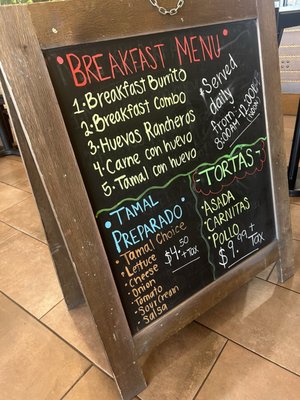 • BREAKFAST MENU •
1-Breakfast Burrito
2-Breakfast Combo
3-Huevas Rancheras
4-Carne con huevo
5-Tamal con huevo
*Served
daily
from
8:00AM-
12:00PM
NOON
• TAMAL
PREPARADO •
*Tamal Choice
*Lettuce
*Cheese
*Onion
*Tomato
*Sour Cream
*Salsa
$4.50
+Tax
TORTAS:
*ASADA
*CARNITAS
*POLLO
$9.49 +
Tax